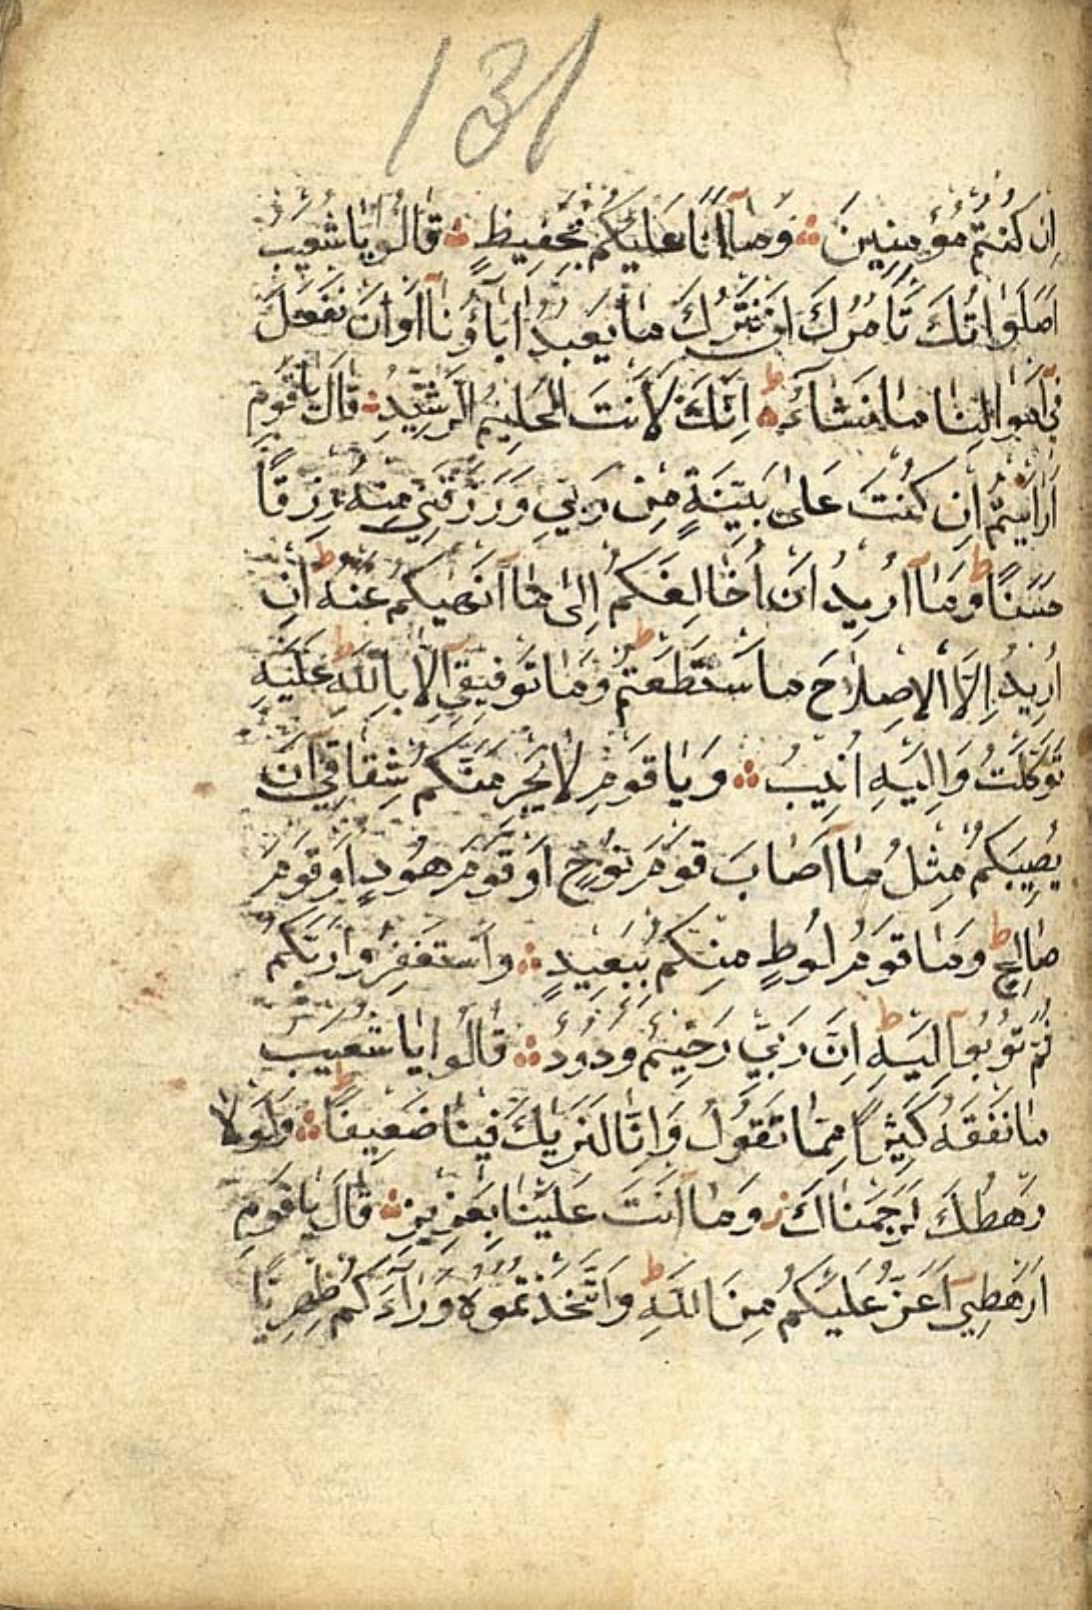 131
اِنْ كُنْتُمْ مُؤْمِنِينَ ۞ وَمَآ اَنَا عَلَيْكُمْ بِحَفِيظٍ ۞ قَالُوا يَا شُعَيْبُ
اَصَلَوَاتُكَ تَأْمُرُكَ اَنْ نَتْرُكَ مَا يَعْبُدُ اٰبَاؤُنَآ اَوْ اَنْ نَفْعَلَ
فِيٓ اَمْوَالِنَا مَا نَشَاءُ ۞ ط اِنَّكَ لَاَنْتَ الْحَلِيمُ الرَّشِيدُ ۞ قَالَ يَا قَوْمِ
اَرَاَيْتُمْ اِنْ كُنْتُ عَلٰى بَيِّنَةٍ مِنْ رَبِّي وَرَزَقَنِي مِنْهُ رِزْقًا
حَسَنًا ط وَمَآ اُرِيدُ اَنْ اُخَالِفَكُمْ اِلٰى مَآ اَنْهٰيكُمْ عَنْهُ ط اِنْ
اُرِيدُ اِلَّا الْاِصْلَاحَ مَا اسْتَطَعْتُمْ ط وَمَا تَوْفِيقِيٓ اِلَّا بِاللّٰهِ ط عَلَيْهِ
تَوَكَّلْتُ وَاِلَيْهِ اُنِيبُ ۞ وَيَا قَوْمِ لَا يَجْرِمَنَّكُمْ شِقَاقِيٓ اَنْ
يُصِيبَكُمْ مِثْلُ مَآ اَصَابَ قَوْمَ نُوحٍ اَوْ قَوْمَ هُودٍ اَوْ قَوْمَ
صَالِحٍ ط وَمَا قَوْمُ لُوطٍ مِنْكُمْ بِبَعِيدٍ ۞ وَاسْتَغْفِرُوا رَبَّكُمْ
ثُمَّ تُوبُوآ اِلَيْهِ ط اِنَّ رَبِّي رَحِيمٌ وَدُودٌ ۞ قَالُوا يَا شُعَيْبُ
مَا نَفْقَهُ كَثِيرًا مِمَّا تَقُولُ وَاِنَّا لَنَرٰيكَ فِينَا ضَعِيفًا ط ۞ وَلَوْلَا
رَهْطُكَ لَرَجَمْنَاكَ ز وَمَآ اَنْتَ عَلَيْنَا بِعَزِيزٍ ۞ قَالَ يَا قَوْمِ
اَرَهْطِيٓ اَعَزُّ عَلَيْكُمْ مِنَ اللّٰهِ ط وَاتَّخَذْتُمُوهُ وَرَآءَكُمْ ظِهْرِيًّا